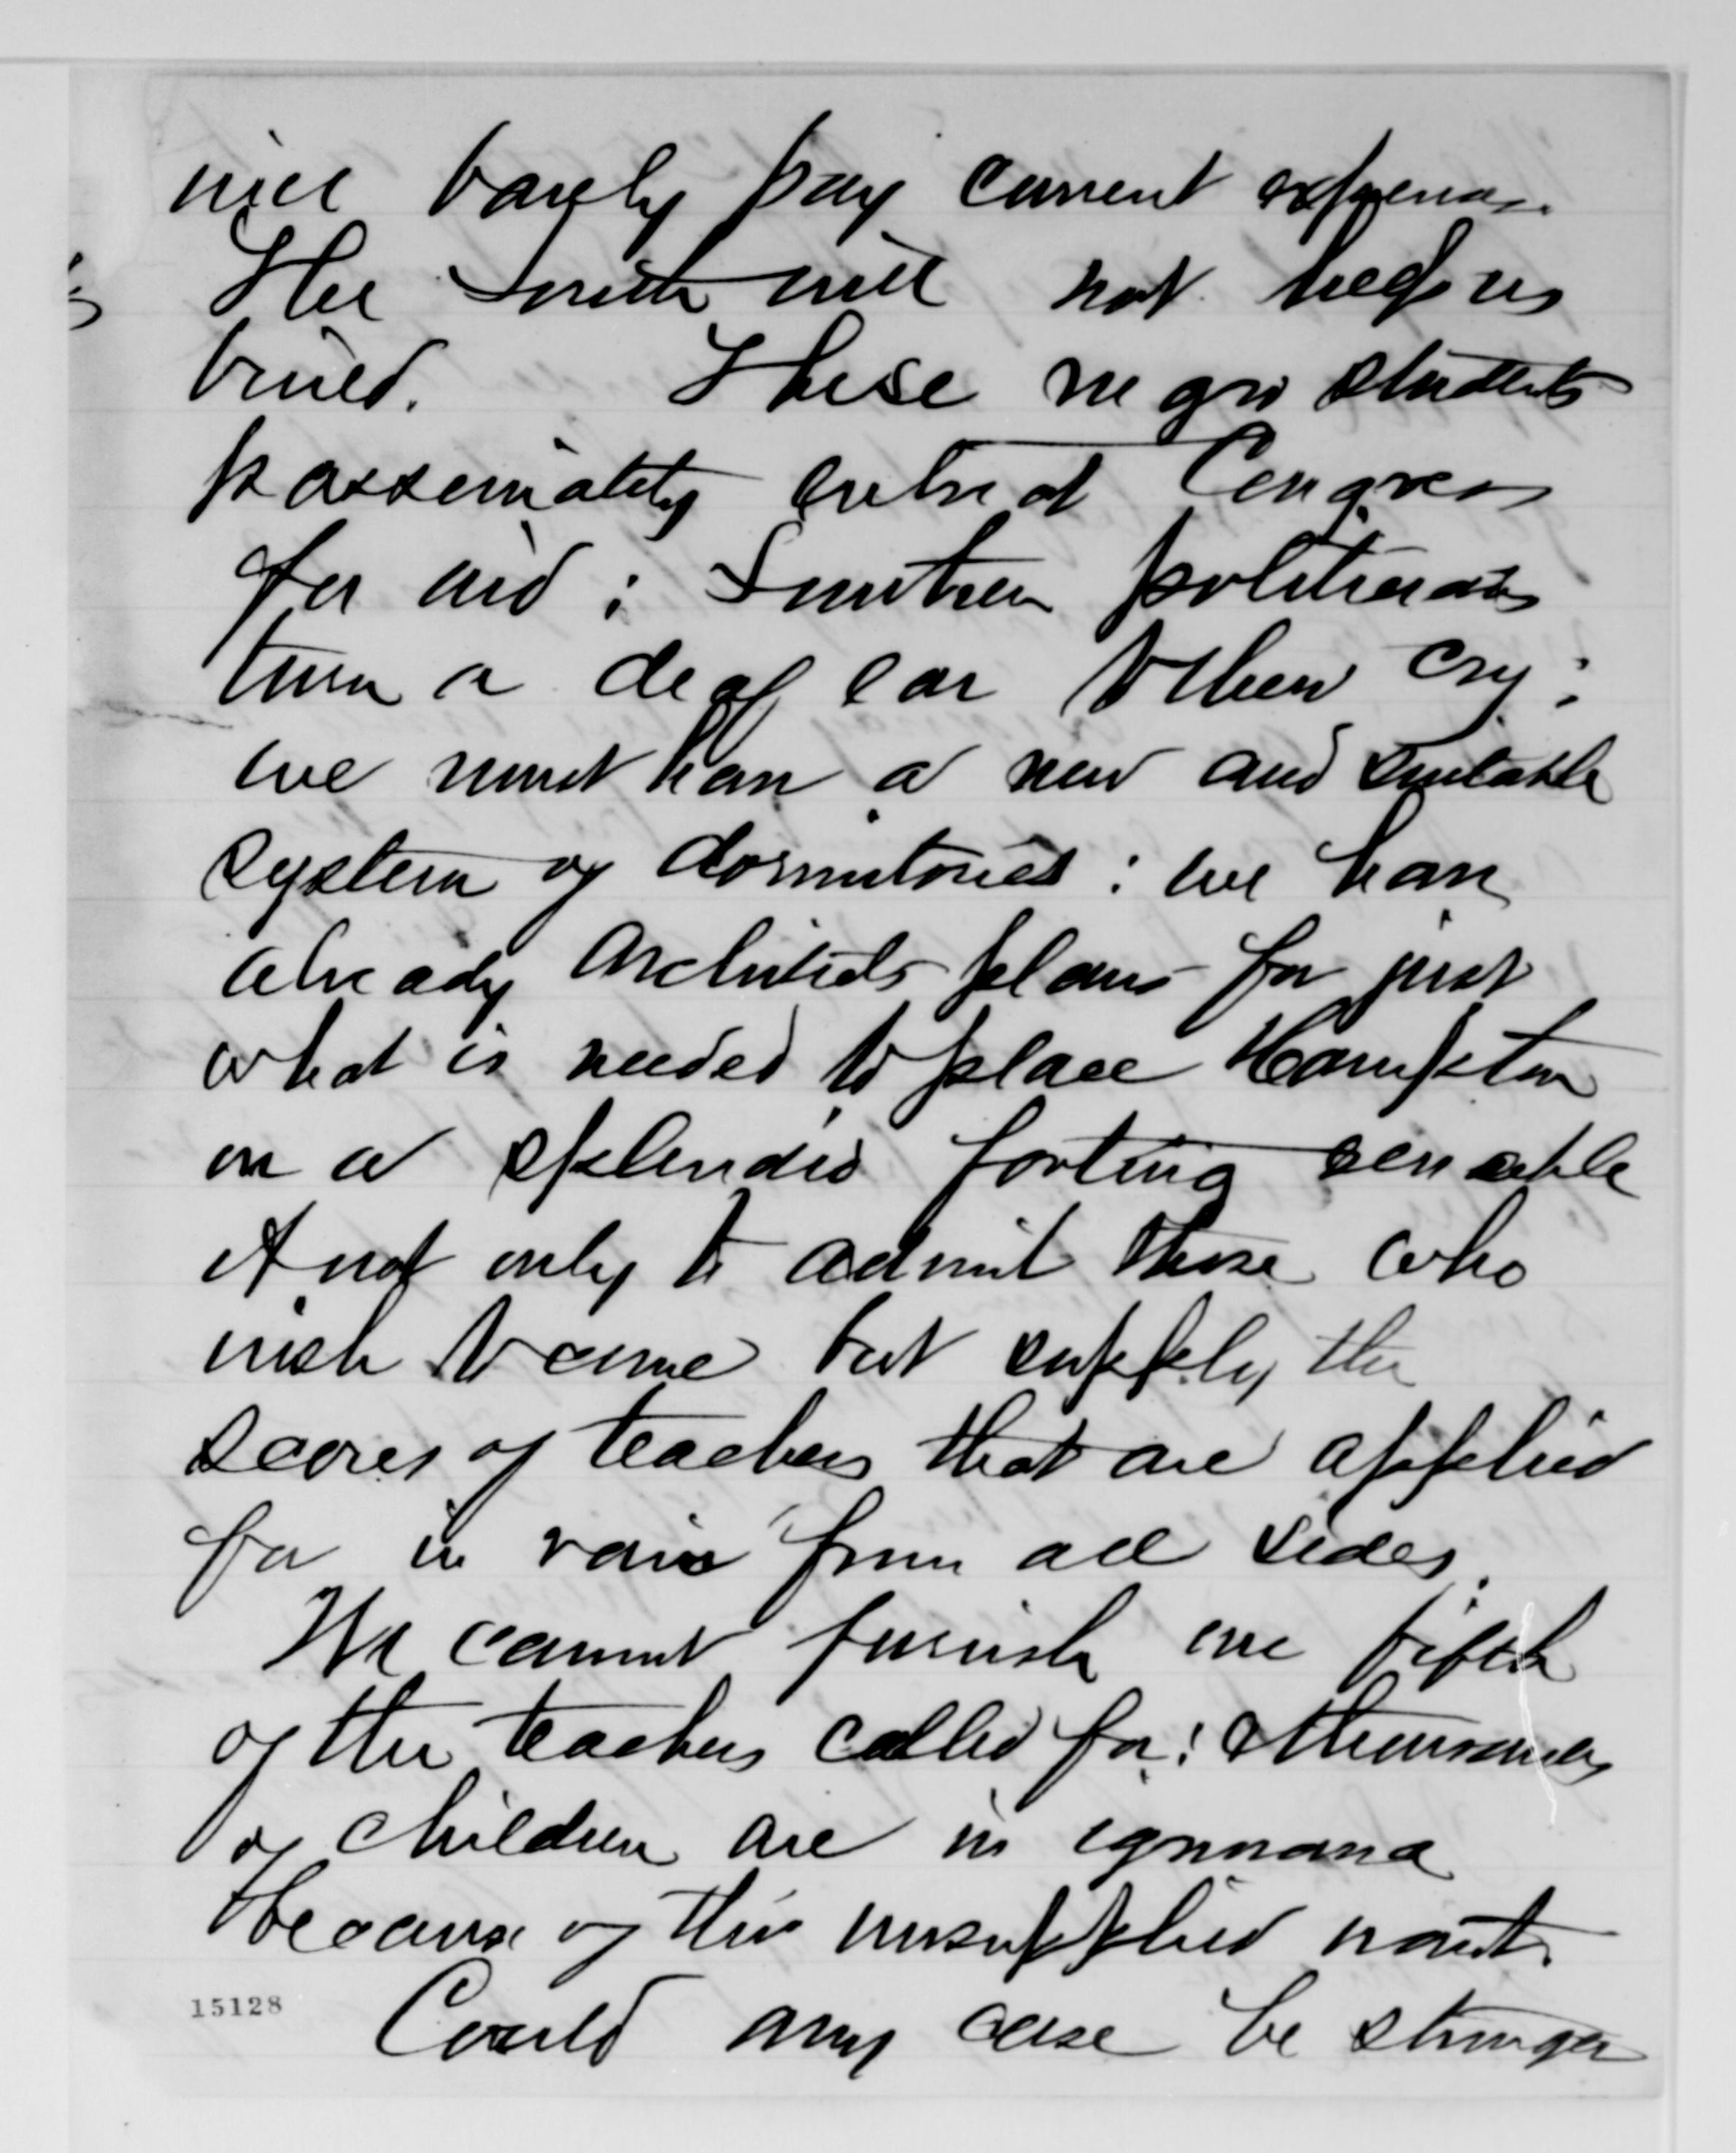 will barely pay current expenses.
The South will not help us
build. These negro students
passionately entreat Congress
for aid; Southern politicians
turn a deaf ear to their cry;
we must have a new and suitable
system of dormitories: we have
already Architects plans for just
what is needed to place Hampton
on a splendid footing & enable
it not only to admit those who
wish to come but supply the
scores of teachers that are applied
for in vain from all sides.
We cannot furnish one fifth
of the teachers called for; & thousands
of children are in ignorance
because of this unsupplied want.
Could any case be stronger
15128